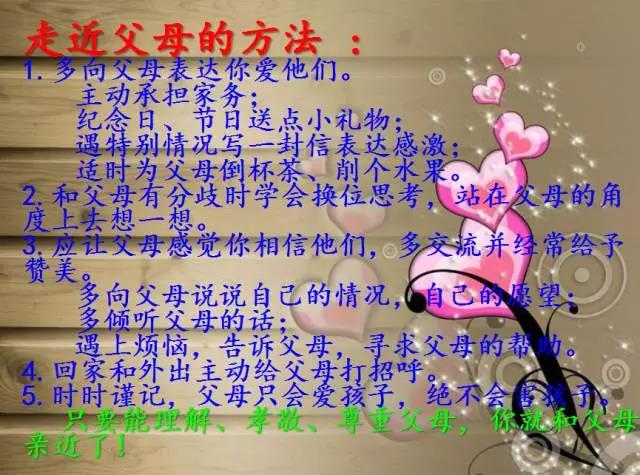 走近父母的方法 ：
1. 多向父母表达你爱他们。
主动承担家务；
纪念日、节日送点小礼物；
遇特别情况写一封信表达感激；
适时为父母倒杯茶、削个水果。
2. 和父母有分歧时学会换位思考，站在父母的角
度上去想一想。
3. 应让父母感觉你相信他们，多交流并经常给予
赞美。
多向父母说说自己的情况，自己的愿望；
多倾听父母的话；
遇上烦恼，告诉父母，寻求父母的帮助。
4. 回家和外出主动给父母打招呼。
5. 时时谨记，父母只会爱孩子，绝不会害孩子。
只要能理解、孝敬、尊重父母，你就和父母
亲近了！